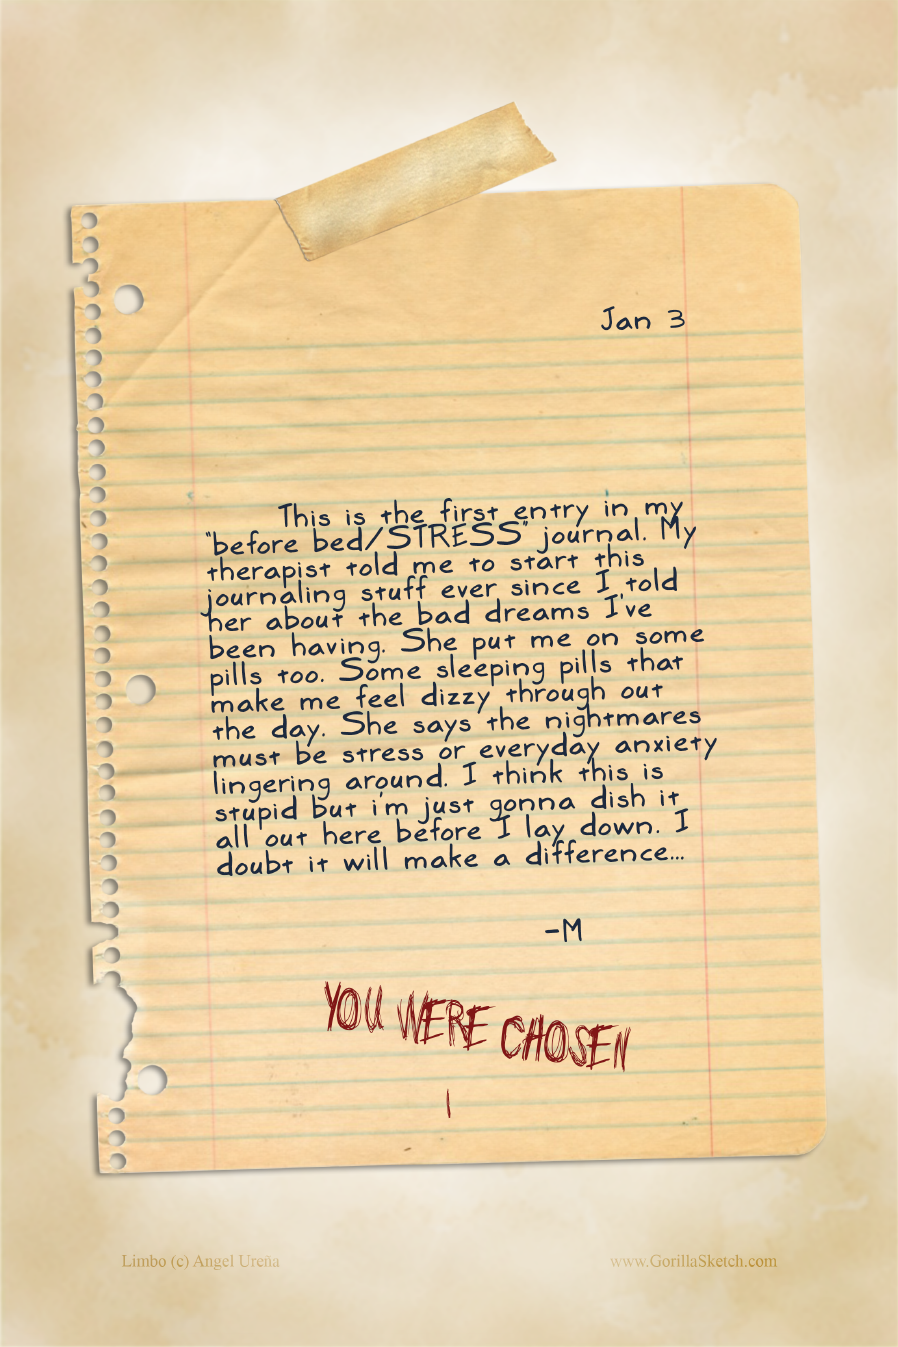 Jan 3
This is the first entry in my
"before bed/STRESS" journal. My
therapist told me to start this
journaling stuff ever since I told
her about the bad dreams I've
been having. She put me on some
pills too. Some sleeping pills that
make me feel dizzy through out
the day. She says the nightmares
must be stress or everyday anxiety
lingering around. I think this is
stupid but i'm just gonna dish it
all out here before I lay down. I
doubt it will make a difference...
-M
YOU WERE CHOSEN
I
Limbo (c) Angel Ureña
www.GorillaSketch.com